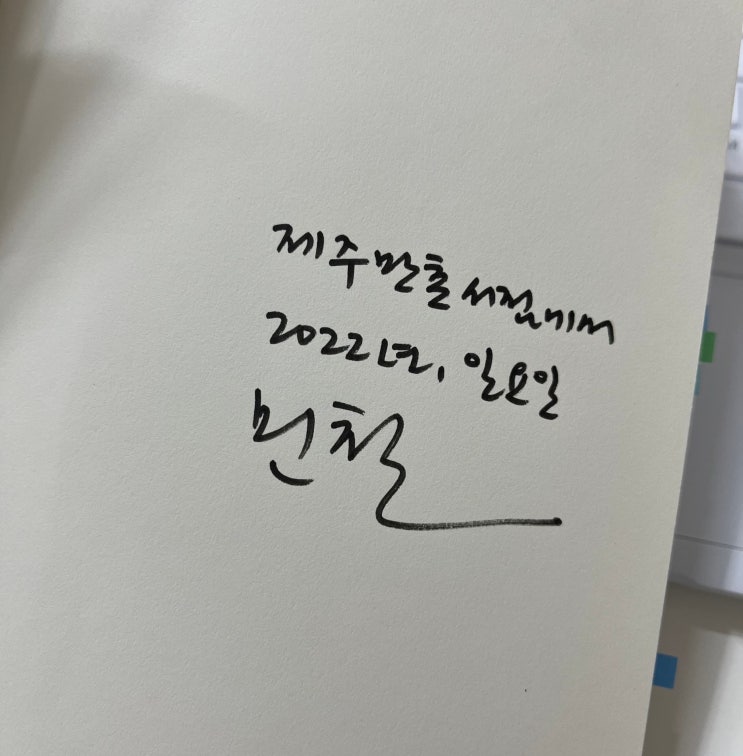 제주 만춘 서점에서
2022년, 일요일
민철